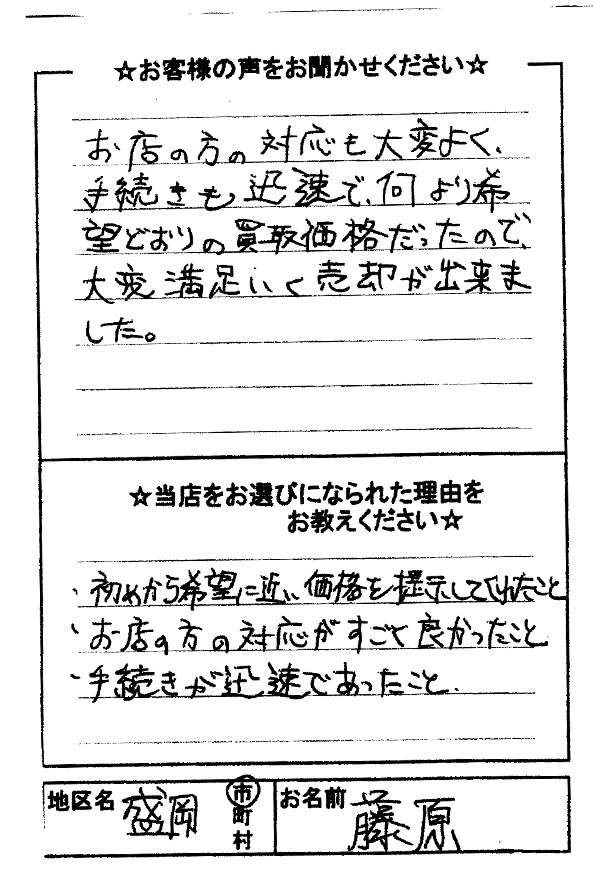 ☆お客様の声をお聞かせください☆
お店の方の対応も大変よく、
手続きも迅速で、何より希
望どおりの買取価格だったので、
大変満足いく売却が出来ま
した。
☆当店をお選びになられた理由を
お教えください☆
・初めから希望に近い価格を提示してくれたこと
・お店の方の対応がすごく良かったこと
・手続きが迅速であったこと.
地区名 盛岡 市町村 お名前 藤原